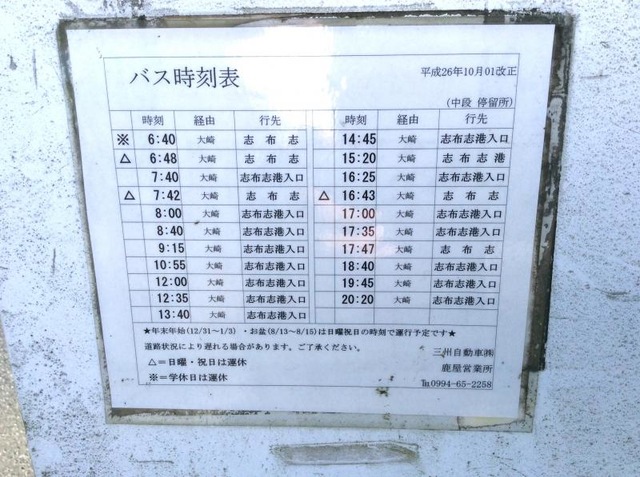 バス時刻表
平成26年10月01改正
(中段 停留所)
時刻 経由 行先 時刻 経由 行先
※ 6:40 大崎 志布志 14:45 大崎 志布志港入口
△ 6:48 大崎 志布志 15:20 大崎 志布志港
7:40 大崎 志布志港入口 16:25 大崎 志布志港入口
△ 7:42 大崎 志布志 △ 16:43 大崎 志布志
8:00 大崎 志布志港入口 17:00 大崎 志布志港入口
8:40 大崎 志布志港入口 17:35 大崎 志布志港入口
9:15 大崎 志布志港入口 17:47 大崎 志布志
10:55 大崎 志布志港入口 18:40 大崎 志布志港入口
12:00 大崎 志布志港入口 19:45 大崎 志布志港入口
12:35 大崎 志布志港入口 20:20 大崎 志布志港入口
13:40 大崎 志布志港入口
★年末年始(12/31~1/3)・お盆(8/13~8/15)は日曜祝日の時刻で運行予定です★
道路状況により遅れる場合があります。ご了承ください。
△=日曜・祝日は運休
※=学休日は運休
三州自動車㈱
鹿屋営業所
℡0994-65-2258